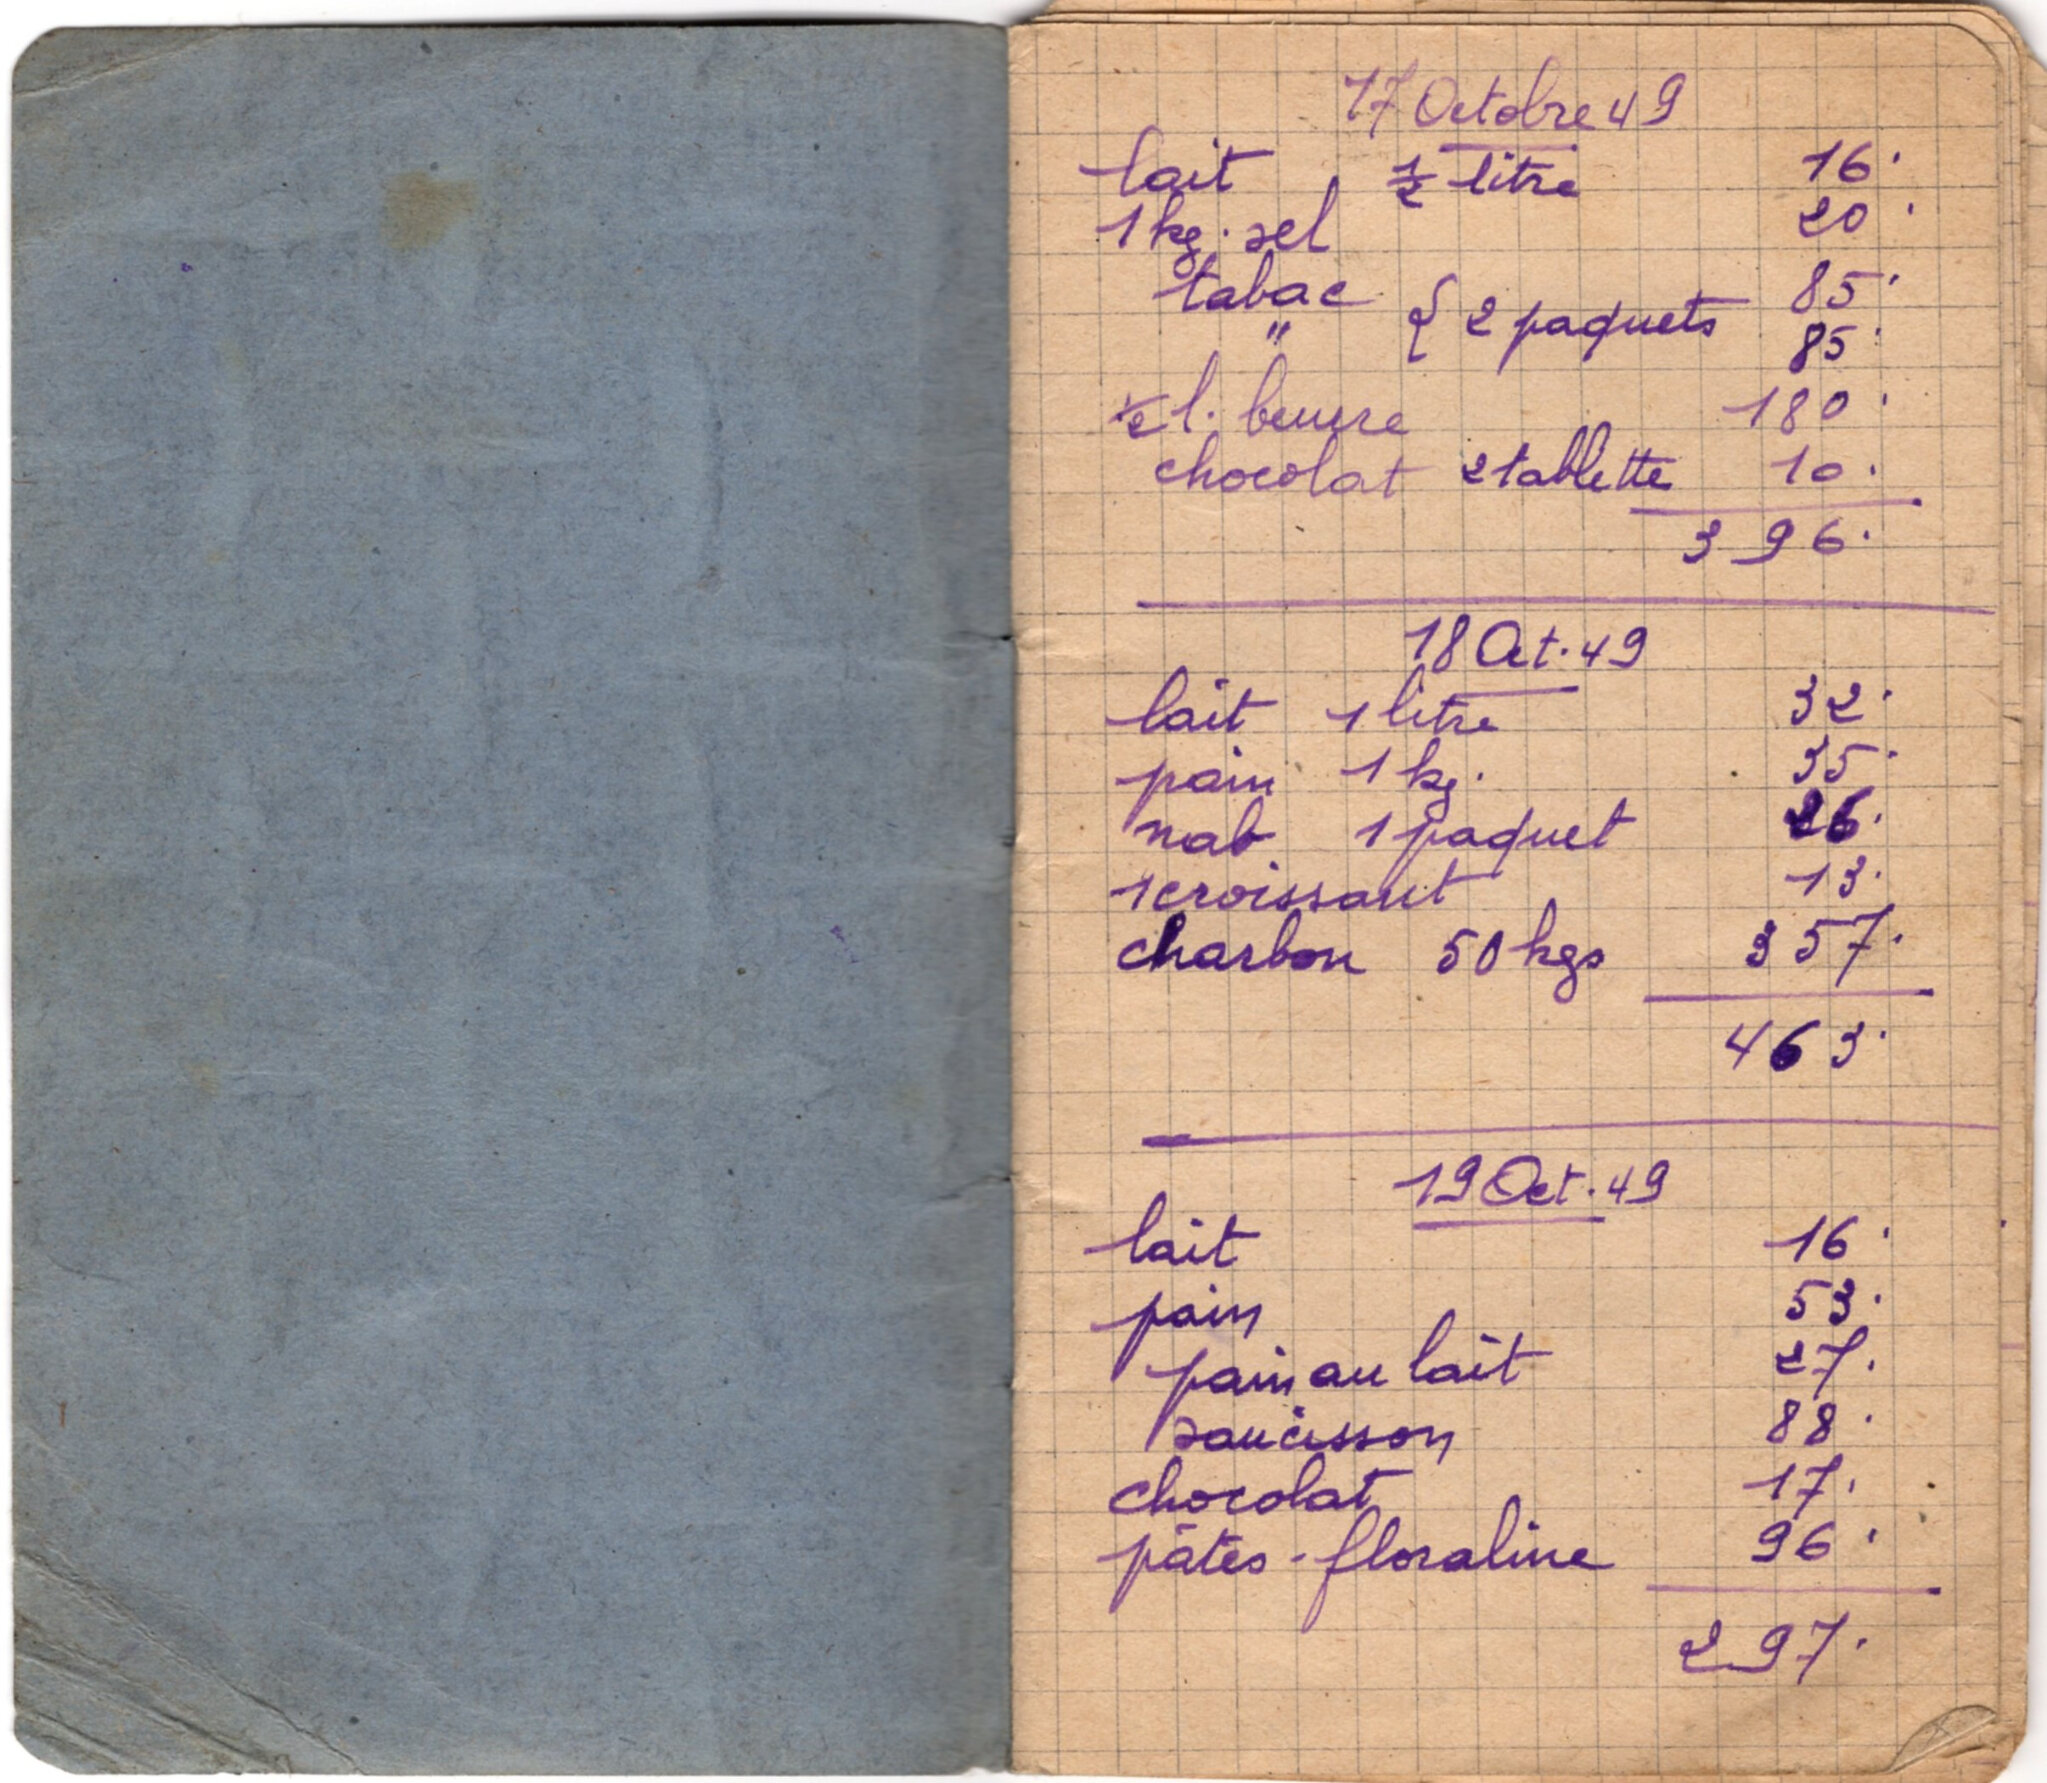 17 Octobre 49
lait ½ litre 16.
1 kg. sel 20.
tabac { 2 paquets 85.
" 85.
½ l. beurre 180.
chocolat 2 tablette 10.
396.
18 Oct. 49
lait 1 litre 32.
pain 1 kg. 35.
nab 1 paquet 26.
1 croissant 13.
charbon 50 kgs 357.
463.
19 Oct. 49
lait 16.
pain 53.
pain au lait 27.
saucisson 88.
chocolat 17.
pâtes - floraline 96.
297.